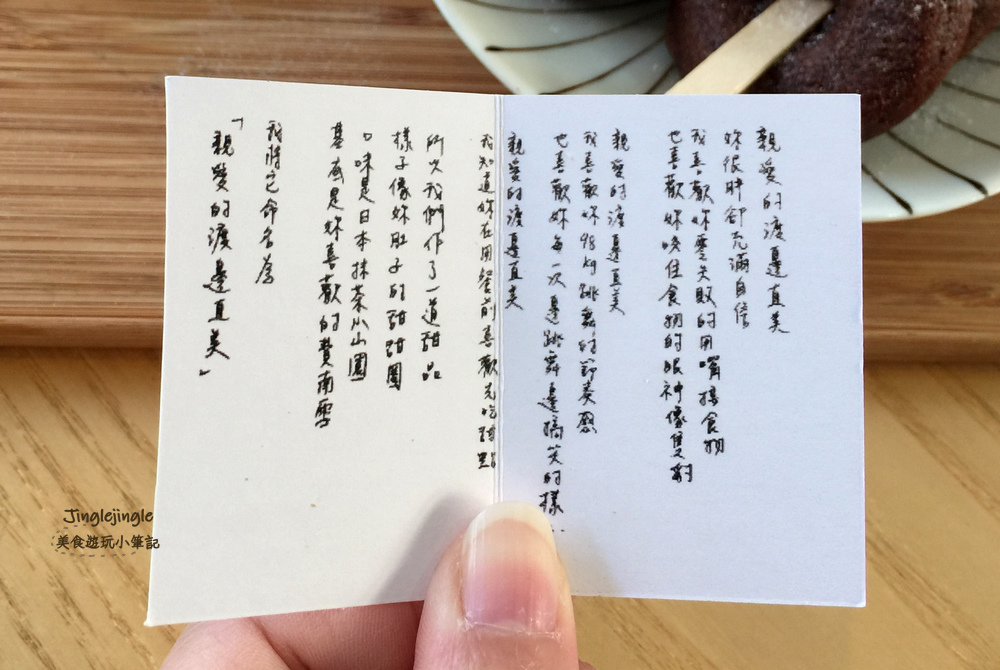 親愛的渡邊直美
妳很胖卻充滿自信
我喜歡妳零失敗的用嘴接食物
也喜歡妳咬住食物的眼神像隻豹
親愛的渡邊直美
我喜歡妳98kg跳舞的節奏感
也喜歡妳每一次邊跳舞邊搞笑的樣…
親愛的渡邊直美
我知道妳在用餐前喜歡先吃甜點
所以我們作了一道甜品
樣子像妳肚子的甜甜圈
口味是日本抹茶小山園
基底是妳喜歡的費南雪
我將它命名為
「親愛的渡邊直美」
Jinglejingle
美食遊玩小筆記